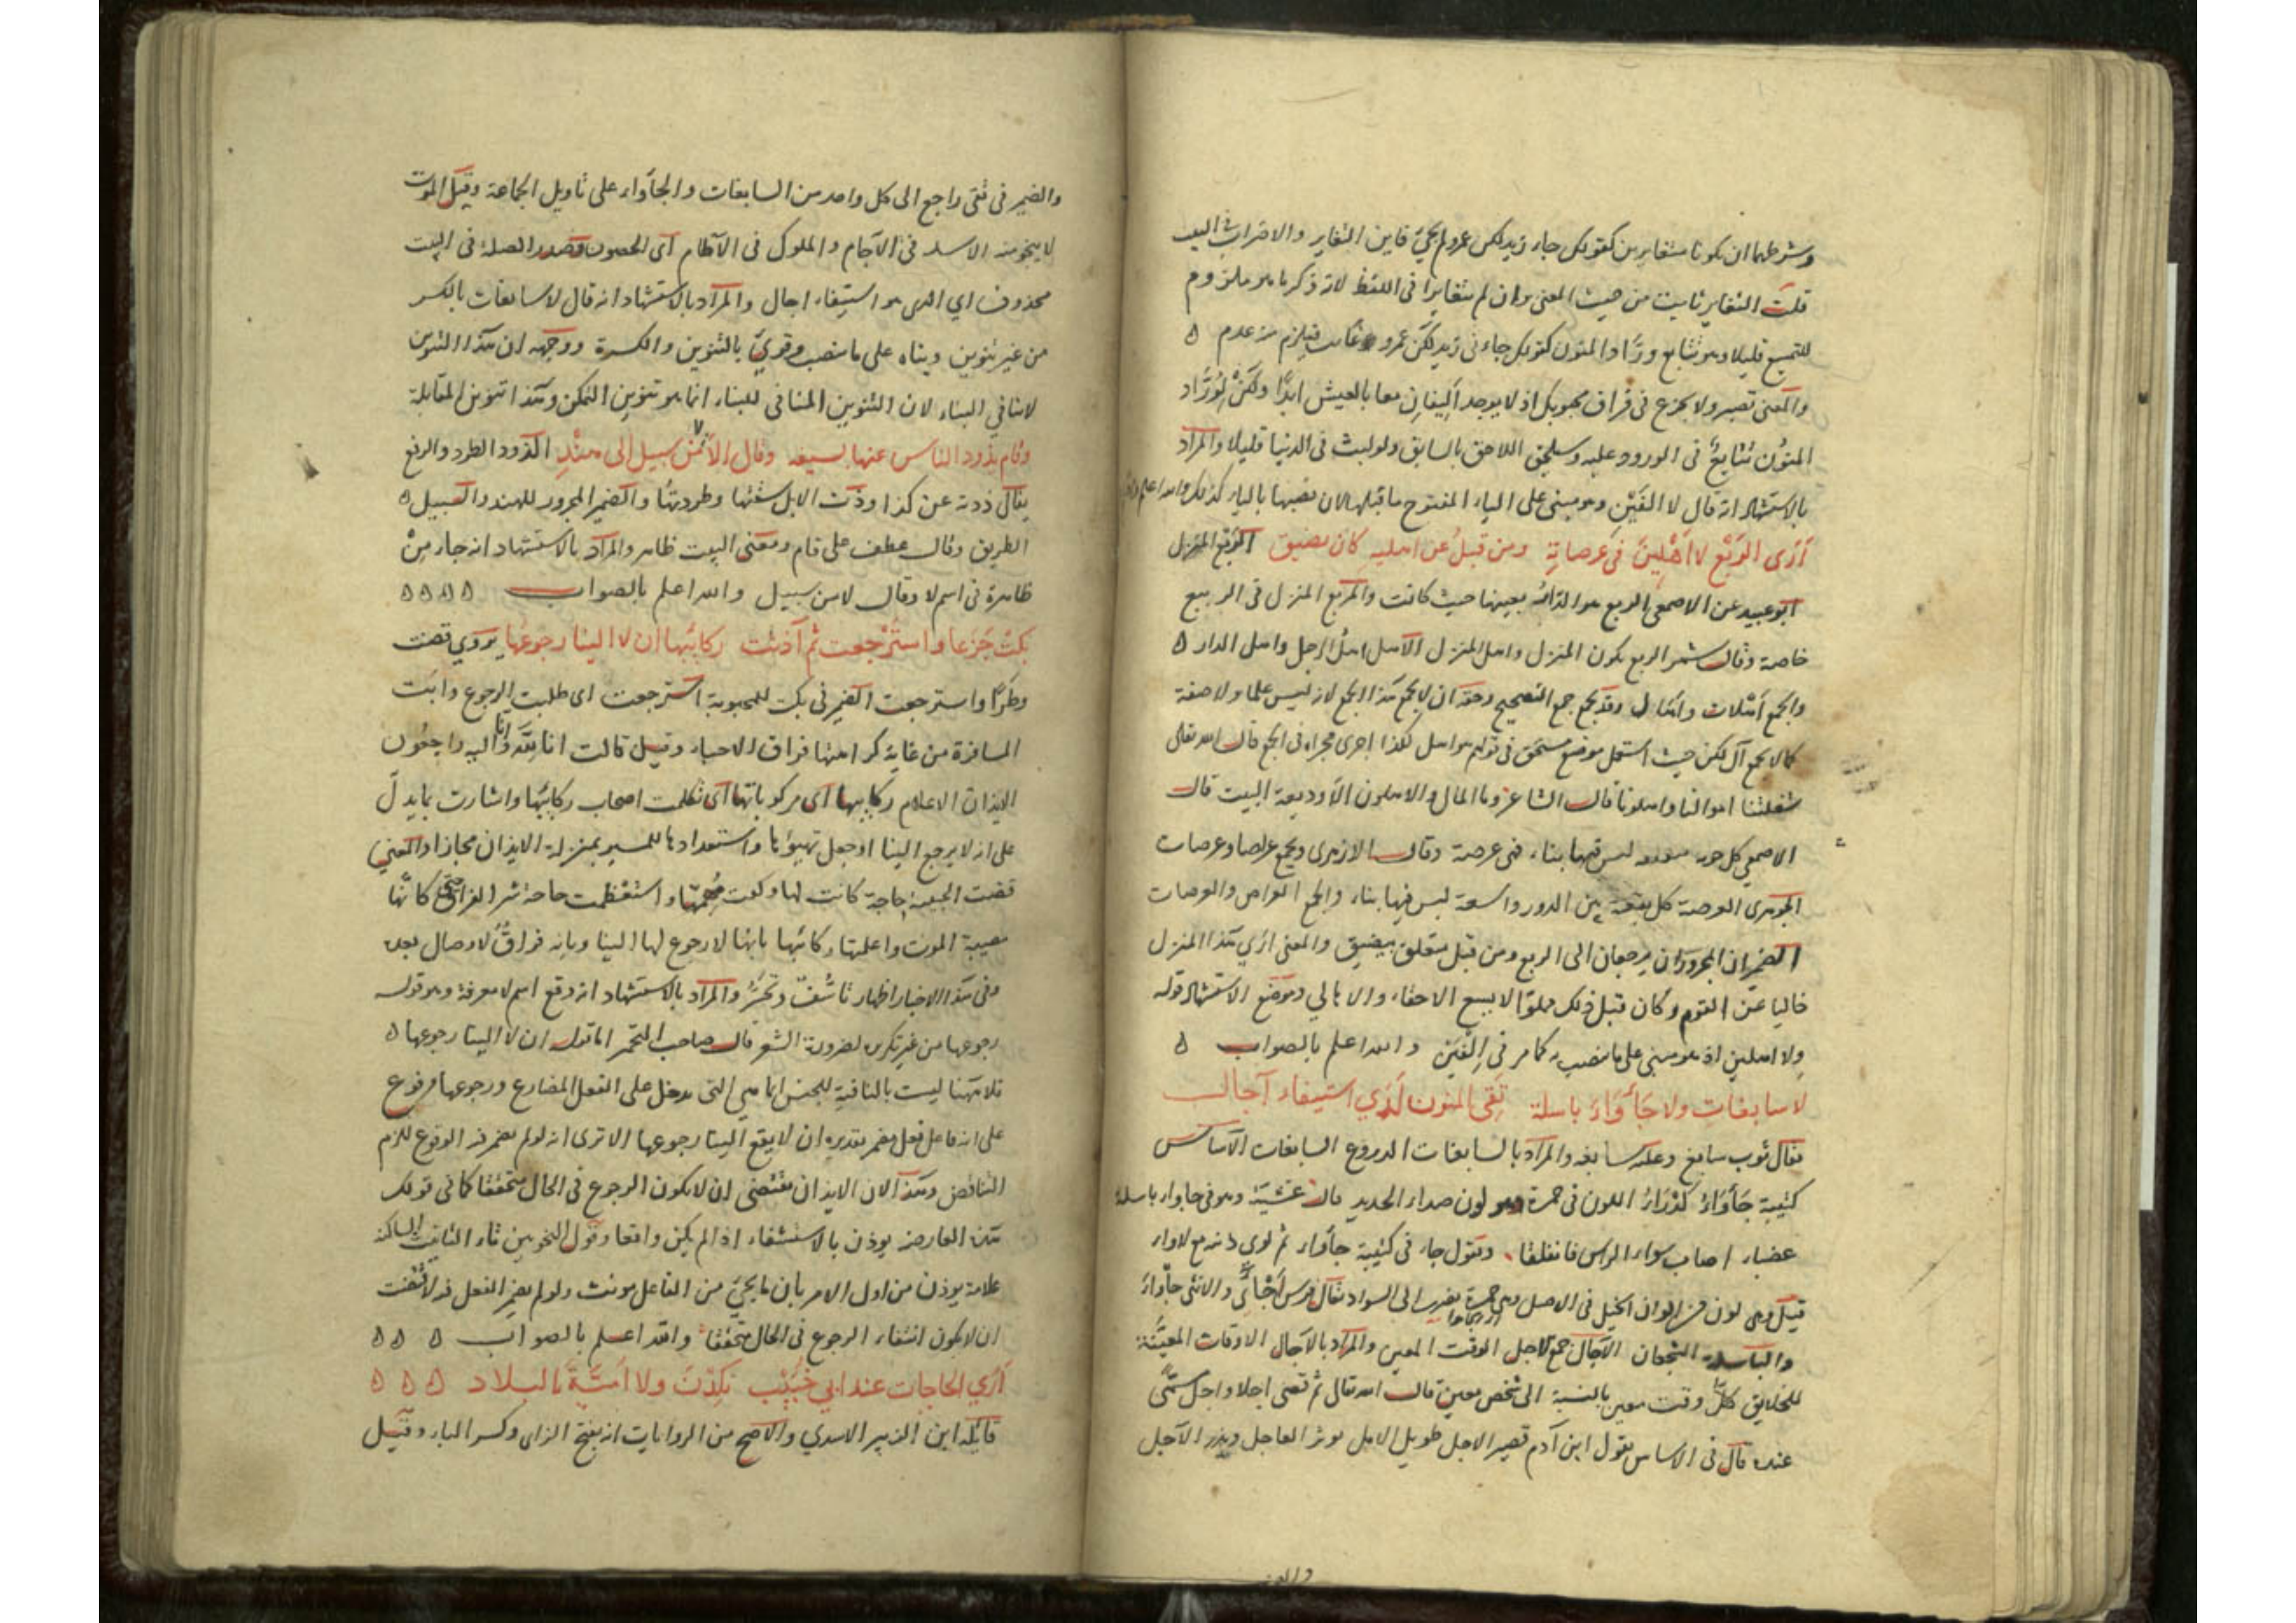 وشرطها ان يكونا متغايرين كقولك جاء زيد لكن عمرو لم يجئ فاين التغاير والاضراب في البيت
قلت التغاير ثابت من حيث المعنى وان لم يتغايرا في اللفظ لانه ذكر ما هو ملزوم
للتمتع قليلا وهو تتابع وراد المنون كقولك جاءنى زيد لكن عمرو غائب فيلزم منه عدم ه
والمعنى تصبر ولا تجزع فى فراق محبوبك اذ لا يوجد اليفان معا بالعيش ابدا ولكن لوراد
المنون تتابع فى الورود عليه وسيلحق اللاحق بالسابق ولو لبث فى الدنيا قليلا والمراد
بالاستشهاد انه قال لا الفين وهو مبنى على الياء المفتوح ما قبلها لان نصبها بالياء كذلك والله اعلم
أرى الربع لا أهلين فى عرصاته ومن قبل عن اهليه كان يضيق الربع المنزل
ابو عبيد عن الاصمعى الربع هو الدار بعينها حيث كانت والمربع المنزل فى الربيع
خاصة وقال شمر الربع يكون المنزل واهل المنزل الاهل اهل الرجل واهل الدار ه
والجمع أهلات واهال وقد يجمع جمع التصحيح وحقه ان لا يجمع هذا الجمع لانه ليس علما ولا صفة
كما لا يجمع آل لكن حيث استعمل موضع مستحق فى قولهم هو اهل لكذا اجرى مجراه فى الجمع قال الله تعالى
شغلتنا اموالنا واهلونا قال الشاعر وما المال والاهلون الا وديعة البيت قال
الاصمعي كل جوبة ليس فيها بناء فهى عرصة وقال الازهرى ويجمع عراصا وعرصات
الجوهرى العرصة كل بقعة بين الدور واسعة ليس فيها بناء والجمع العراص والعرصات
الضميران المجروران يرجعان الى الربع ومن قبل متعلق بيضيق والمعنى أري هذا المنزل
خاليا عن القوم وكان قبل ذلك مملوا لا يسع الاحفاء والاهالي وموضع الاستشهاد قوله
ولا اهلين اذ هو مبنى على ما ينصب به كما مر فى إلفين والله اعلم بالصواب ه
لا سابغات ولا جأواء باسلة تقى المنون لدي استيفاء آجال
يقال ثوب سابغ وعليه سابغه والمراد بالسابغات الدروع السابغات الاساس
كتيبة جأواء كدراء اللون فى حمرة وهو لون صداء الحديد قال عشية وهو فى جاواء باسلة
عضباء اصاب سواء الراس فانفلقا ويقول جاء فى كتيبة جأواء ثم لوى
قيل وهى لون من الوان الخيل فى الاصل وهى حمرة يضرب الى السواد يقال فرس أجأى والانثى جأواء
والباسلة الشجعان الآجال جمع الاجل الوقت المعين والمراد بالآجال الاوقات المعينة
للخلايق كل وقت معين بالنسبة الى شخص معين قال الله تعالى ثم قضى اجلا واجل مسمى
عنده قال فى الاساس يقول ابن آدم قصير الاجل طويل الامل يوثر العاجل ويذر الآجل
والضمير
والضمير فى تقى راجع الى كل واحد من السابغات والجأواء على تأويل الجماعة وقيل الموت
لا ينجو منه الاسد فى الآجام والملوك فى الآطام أى الحصون وصدر الصلة فى البيت
محذوف اي الذى هو استيفاء اجال والمراد بالاستشهاد انه قال لا سابغات بالكسر
من غير تنوين وبناه على ما ينصب وقريء بالتنوين والكسرة ووجهه ان هذا التنوين
لا ينافي البناء لان التنوين المنافى للبناء انما هو تنوين التمكن وهذا تنوين المقابلة
وقام يذود الناس عنها بسيفه وقال ألا لا من سبيل الى هند الذود الطرد والدفع
يقال ذدته عن كذا وذدت الابل سقتها وطردتها والضمير المجرور للهند والسبيل ه
الطريق وقال عطف على قام ومعنى البيت ظاهر والمراد بالاستشهاد انه جاء من
ظاهرة فى اسم لا وقال لا من سبيل والله اعلم بالصواب ه ه ه ه
بكت جزعا واسترجعت ثم آذنت ركائبها ان لا الينا رجوعها يروي قضت
وطرا واسترجعت الضمير فى بكت للمحبوبة استرجعت اى طلبت الرجوع وابت
المسافرة من غاية كراهتها فراق الاحباء وقيل قالت انا لله وانا اليه راجعون
الايذان الاعلام ركايبها اى مركوباتها أى تكلمت اصحاب ركائبها واشارت بما يدل
على انه لا يرجع الينا او جعل تهيؤها واستعدادها للمسير بمنزلة الايذان مجازا والمعنى
قضت الحبيبة حاجة كانت لها وكفت مهمتها واستعظمت حادثة شر الفراق حتى كأنها
مصيبة الموت واعلمتنا ركائبها بانها لا رجوع لها الينا وبانه فراق لا وصال بعده
وفى هذا الاخبار اظهار تأسف وتحسر والمراد بالاستشهاد انه وقع اسم لا معرفة وهو قوله
رجوعها من غير تكرير لضرورة الشعر قال صاحب التخمير اما قوله ان لا الينا رجوعها ه
فلا ههنا ليست بالنافية للجنس انما هي التى تدخل على الفعل المضارع ورجوعها مرفوع
على انه فاعل فعل مضمر تقديره ان لا يقع الينا رجوعها الا ترى انه لو لم يضمر فيه الوقوع للزم
التناقض وهذا لان الايذان يقتضى ان لا يكون الرجوع فى الحال متحققا كما فى قولك
هذه العارضة يوذن بالاستشفاء اذا لم يكن واقعا وقول النحويين تاء التانيث الساكنة
علامة يوذن من اول الامر بان ما يجئ من الفاعل مونث ولو لم يضمر الفعل فيه لاقتضت
ان لا يكون انتفاء الرجوع فى الحال متحققا والله اعلم بالصواب ه ه ه
أرى الحاجات عند ابي خبيب نكدن ولا أمية بالبلاد ه ه ه
قائله ابن الزبير الاسدي والاصح من الروايات انه بفتح الزاى وكسر الباء وقيل